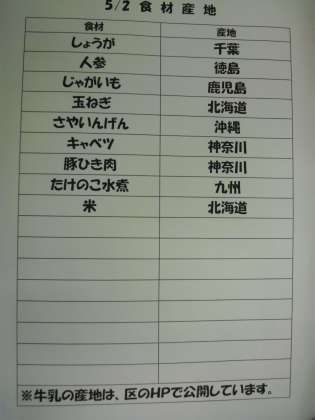 5/2 食材産地
食材 産地
しょうが 千葉
人参 徳島
じゃがいも 鹿児島
玉ねぎ 北海道
さやいんげん 沖縄
キャベツ 神奈川
豚ひき肉 神奈川
たけのこ水煮 九州
米 北海道
※牛乳の産地は、区のHPで公開しています。